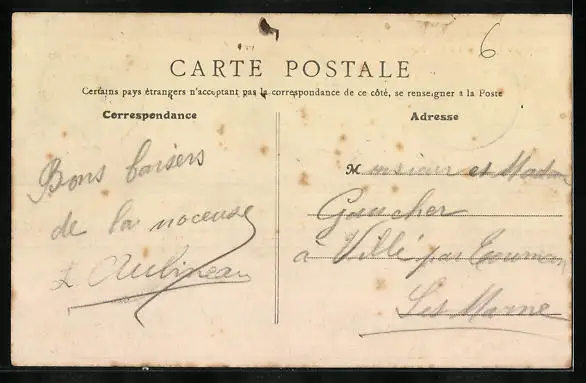 6
CARTE POSTALE
Certains pays étrangers n'acceptant pas la correspondance de ce côté, se renseigner a la Poste
Correspondance
Bons baisers
de la noceuse
Aubineau
Adresse
Monsieur et Madame
Gaucher
à Villé par
Marne